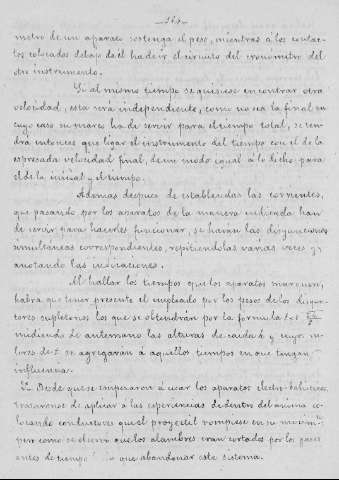 metro de un aparato sostenga el peso, mientras á los contac-
tos colocados debajo de él ha de ir el circuito del cronometro del
otro instrumento.
Si al mismo tiempo se quisiese encontrar otra
velocidad, esta será independiente, como no sea la final en
cuyo caso su marco ha de servir para el tiempo total, se ten-
drá entonces que ligar el instrumento del tiempo con el de la
espresada velocidad final, de un modo igual á lo dicho para
el de la inicial y el tiempo.
Ademas despues de establecidas las corrientes,
que pasando por los aparatos de la manera indicada han
de servir para hacerles funcionar, se harán las disyunciones
simultaneas correspondientes, repitiendolas varias veces y
anotando las indicaciones.
Al hallar los tiempos que los aparatos marquen,
habrá que tener presente el empleado por los pesos de los disyun-
tores supletorios los que se obtendrán por la formula
midiendo de antemano las alturas de caida h y cuyos va-
lores de t se agregarán á aquellos tiempos en que tengan
influencia.
Desde que se empezaron á usar los aparatos electro-balísticos,
trataronse de aplicar á las esperiencias dentro del anima co-
locando conductores que el proyectil rompiese en su movimto
pero como se observó que los alambres eran cortados por los gases
antes de tiempo que abandonar este sistema.